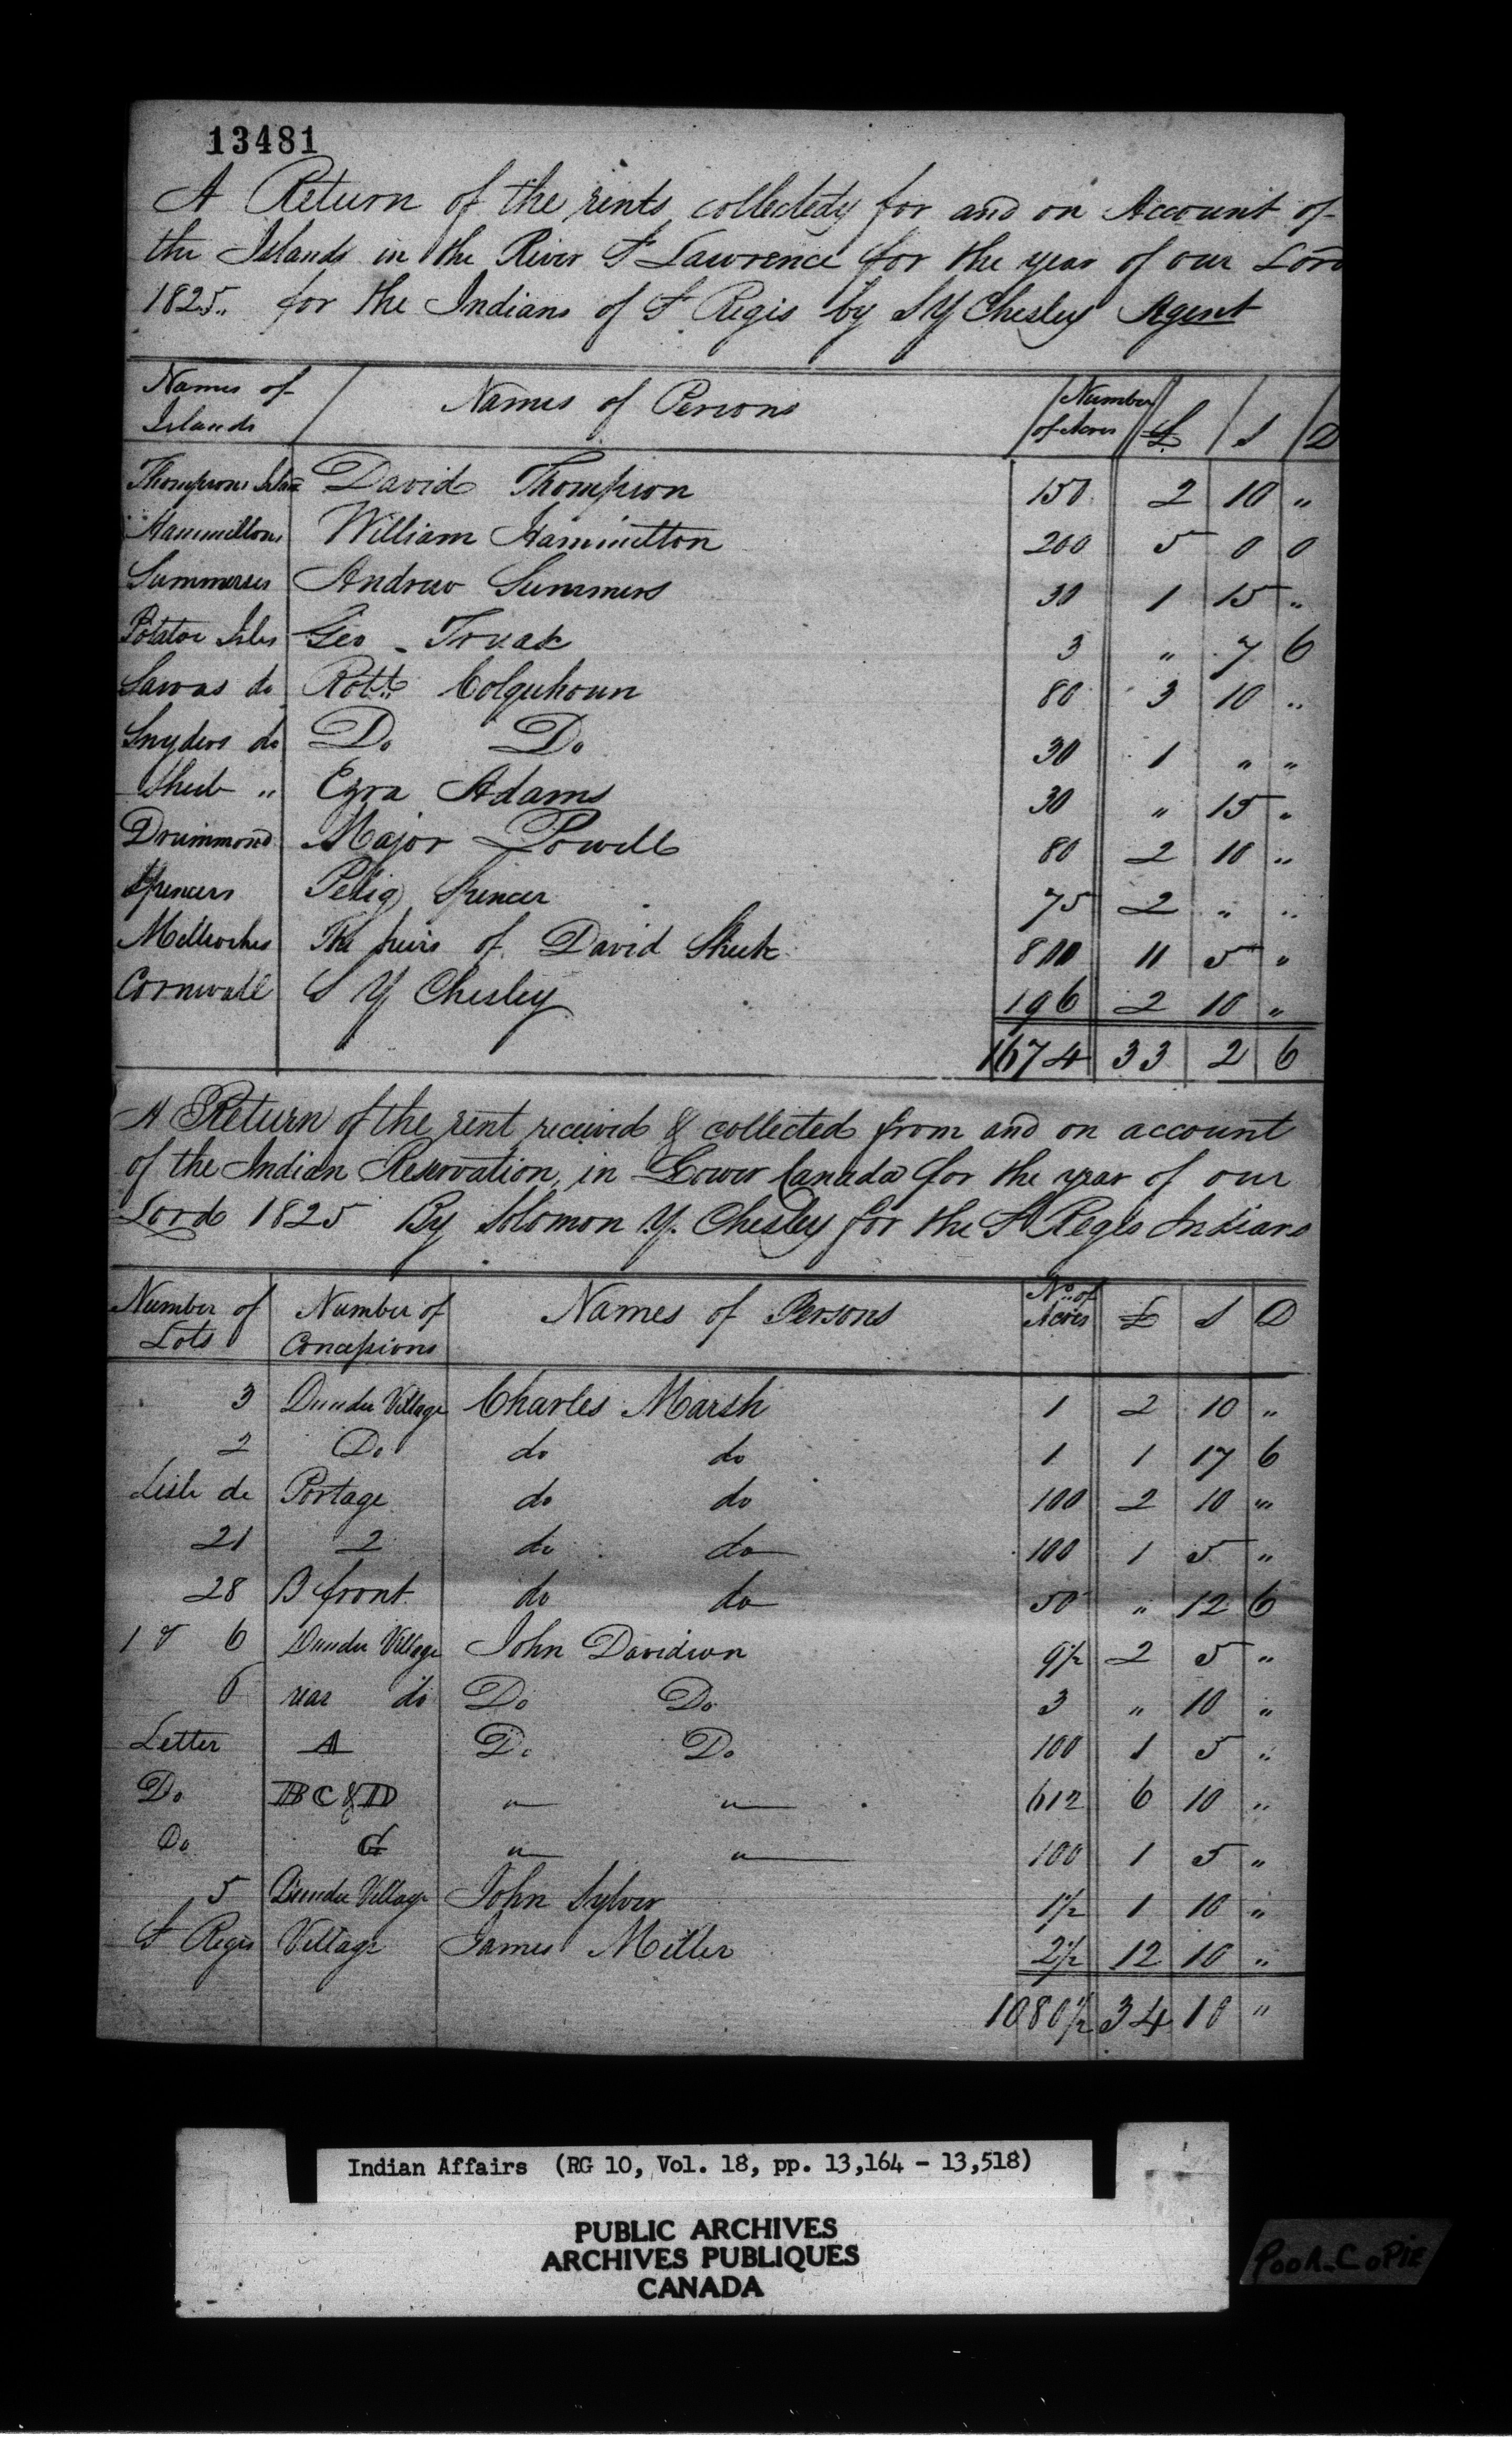 13481
A Return of the rents collected for and on Account of
the Islands in the River St Lawrence for the year of our Lord
1825.. for the Indians of St Regis by S Y Chesley Agent
Names of Islands Names of Persons Number of Acres £ S D
Thompsons David Thompson 150 2 10 "
Hammiltons William Hammilton 200 5 0 0
Summerses Andrew Summers 30 1 15 "
Potatoe Isles Geo 3 " 7 6
do Robt. Colquhoun 80 3 10 "
Snyders do Do Do 30 1 " "
Sheek " Ezra Adams 30 " 15 "
Drummond Major Powell 80 2 10 "
Spencers Pelig Spencer 75 2 " "
The heirs of David Sheek 800 11 5 "
Cornwall S Y Chesley 196 2 10 "
1674 33 2 6
A Return of the rent received & collected from and on account
of the Indian Reservation in Lower Canada for the year of our
Lord 1825 By Solomon Y. Chesley for the St Regis Indians
Number of Lots Number of Concessions Names of Persons No. of Acres £ S D
3 Dundee Village Charles Marsh 1 2 10 "
2 Do do do 1 1 17 6
Lisle de Portage do do 100 2 10 "
21 2 do do 100 1 5 "
28 B front do do 50 " 12 6
1 & 6 Dundee Village John Davidson 9½ 2 5 "
6 rear do Do Do 3 " 10 "
Letter A Do Do 100 1 5 "
Do B C & D " " 612 6 10 "
Do G " " 100 1 5 "
5 Dundee Village John Sylver 1½ 1 10 "
St Regis Village James Miller 2½ 12 10 "
1080½ 34 10 "
Indian Affairs (RG 10, Vol. 18, pp. 13,164 - 13,518)
PUBLIC ARCHIVES
ARCHIVES PUBLIQUES
CANADA
POOR COPIE